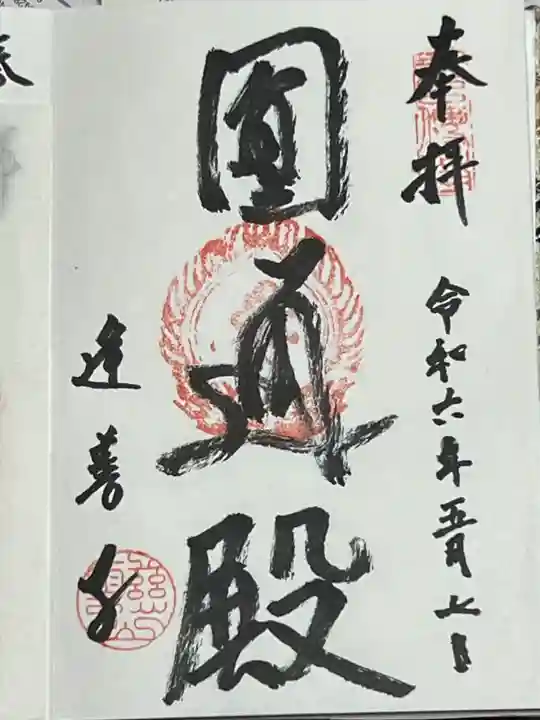 奉拝
令和六年五月七日
圓通殿
逢善寺